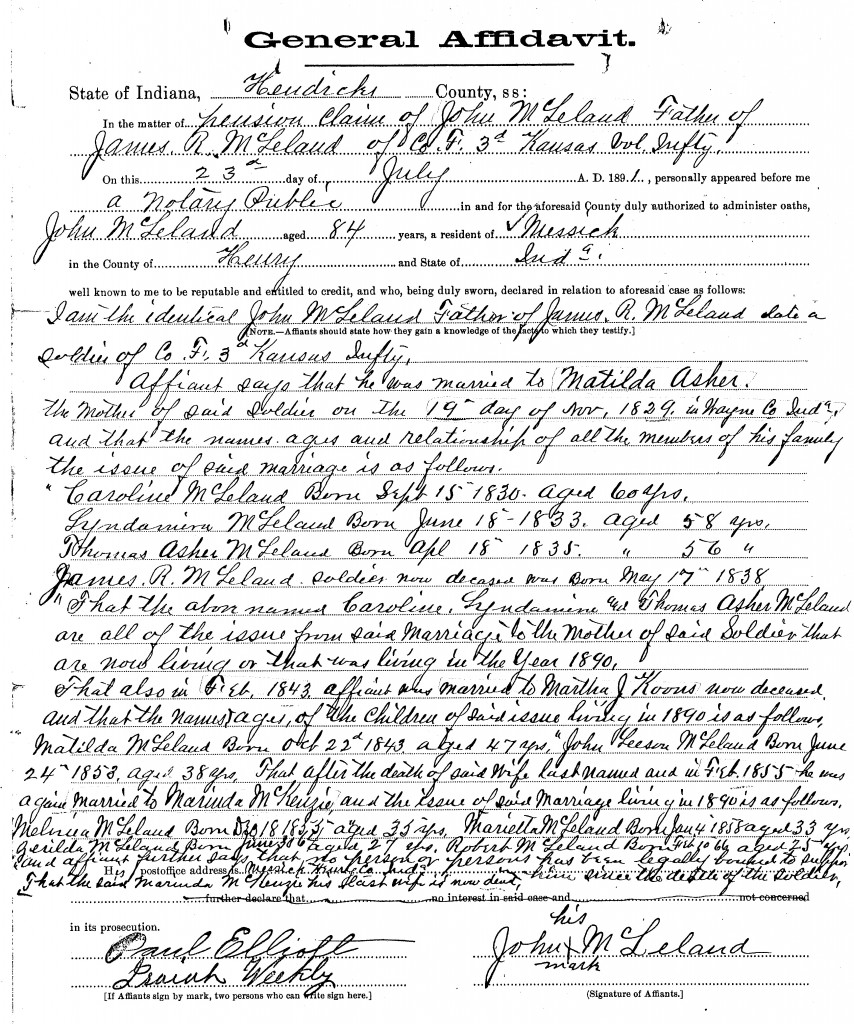 General Affidavit.
State of Indiana, Hendricks County, ss:
In the matter of pension claim of John McLeland Father of
James. R. McLeland of Co. F. 3d Kansas Vol. Infty.
On this 23d day of July A. D. 1891, personally appeared before me
a Notary Public in and for the aforesaid County duly authorized to administer oaths,
John McLeland aged 84 years, a resident of Messick
in the County of Henry and State of Inda.
well known to me to be reputable and entitled to credit, and who, being duly sworn, declared in relation to aforesaid case as follows:
I am the identical John McLeland Father of James. R. McLeland late a
[NOTE.—Affiants should state how they gain a knowledge of the facts to which they testify.]
soldier of Co. F. 3d Kansas Infty.
Affiant says that he was married to Matilda Asher.
the Mother of said soldier on the 19" day of Nov, 1829. in Wayne Co Inda,
and that the names. ages and relationship of all the members of his family
the issue of said marriage is as follows.
" Caroline McLeland Born Sept 15" 1830. aged 60 yrs.
Lyndamira McLeland Born June 18-1833. aged 58 yrs,
Thomas Asher McLeland Born Apl 18" 1835. " 56 "
James. R. McLeland. soldier now deceased was Born May 17" 1838
"That the above named Caroline, Lyndamira and Thomas Asher McLeland
are all of the issue from said Marriage to the Mother of said Soldier that
are now living or that was living in the Year 1890,
That also in Feb. 1843 affiant was married to Martha J Koons now deceased
and that the names, ages, of the children of said issue living in 1890 is as follows,
" Matilda McLeland Born Oct 22d 1843 aged 47 yrs, "John Leeson McLeland Born June
24" 1853, aged 38 yrs, That after the death of said Wife last named and in Feb. 1855 he was
again Married to Marinda McKenzie, and the issue of said Marriage living in 1890 is as follows.
McLeland Born Dec 18 1855 aged 35 yrs. Marietta McLeland Born Jan 4 1858 aged 33 yrs
McLeland Born June 30 aged 27 yrs. Robert McLeland Born Feb 10 66 aged 25 yrs.
"and affiant further says that no person or persons has been legally bound to support
His postoffice address is Messick Henry Co. Inda him since the death of the soldier,
That the said Marinda McKenzie his last wife is now dead,
further declare that no interest in said case and not concerned
in its prosecution.
his
Paul Elliott John X McLeland
Isaiah Weekly mark
[If Affiants sign by mark, two persons who can write sign here.] (Signature of Affiants.)